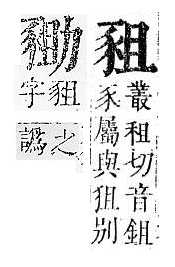 豠
叢租切音鉏
豕屬與狙別
豠字
之譌